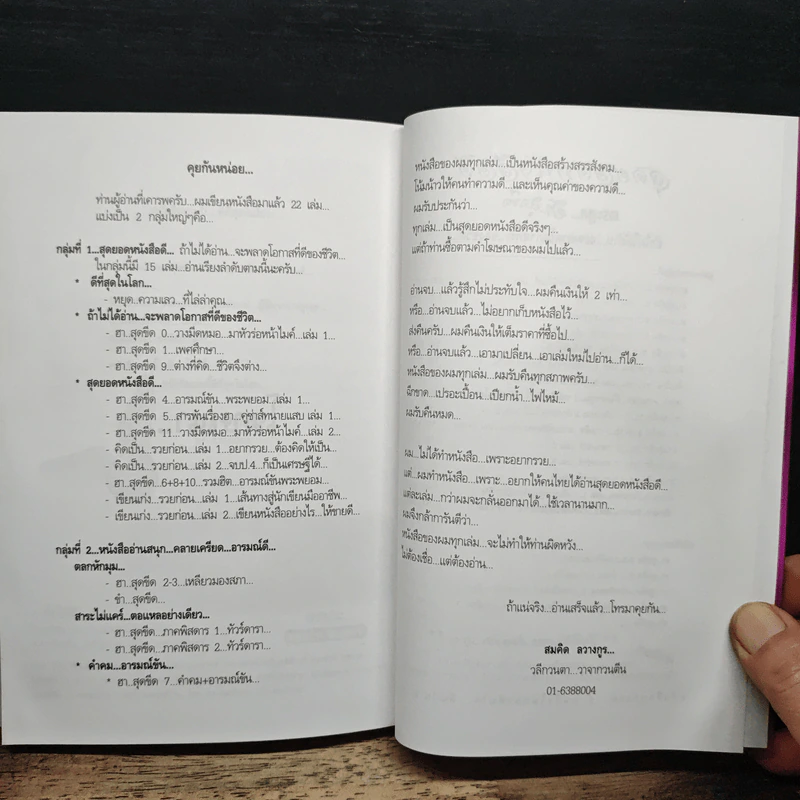 คุยกันหน่อย...
ท่านผู้อ่านที่เคารพครับ...ผมเขียนหนังสือมาแล้ว 22 เล่ม...
แบ่งเป็น 2 กลุ่มใหญ่ๆคือ...
กลุ่มที่ 1...สุดยอดหนังสือดี... ถ้าไม่ได้อ่าน...จะพลาดโอกาสที่ดีของชีวิต...
ในกลุ่มนี้มี 15 เล่ม...อ่านเรียงลำดับตามนี้นะครับ...
* ดีที่สุดในโลก...
- หยุด..ความเลว...ที่ไล่ล่าคุณ...
* ถ้าไม่ได้อ่าน...จะพลาดโอกาสที่ดีของชีวิต...
- ฮา..สุดขีด 0...วางมีดหมอ...มาหัวร่อหน้าไมค์...เล่ม 1...
- ฮา..สุดขีด 1...เพศศึกษา...
- ฮา..สุดขีด 9...ต่างที่คิด...ชีวิตจึงต่าง...
* สุดยอดหนังสือดี...
- ฮา..สุดขีด 4...อารมณ์ขัน..พระพยอม...เล่ม 1...
- ฮา..สุดขีด 5...สารพันเรื่องฮา...คู่ซ่าส์ทนายแสบ เล่ม 1...
- ฮา..สุดขีด 11...วางมีดหมอ...มาหัวร่อหน้าไมค์...เล่ม 2...
- คิดเป็น...รวยก่อน...เล่ม 1...อยากรวย...ต้องคิดให้เป็น...
- คิดเป็น...รวยก่อน...เล่ม 2...จบป.4...ก็เป็นเศรษฐีได้...
- ฮา..สุดขีด...6+8+10...รวมฮิต...อารมณ์ขันพระพยอม...
- เขียนเก่ง...รวยก่อน...เล่ม 1...เส้นทางสู่นักเขียนมืออาชีพ...
- เขียนเก่ง...รวยก่อน...เล่ม 2...เขียนหนังสืออย่างไร...ให้ขายดี...
กลุ่มที่ 2...หนังสืออ่านสนุก...คลายเครียด...อารมณ์ดี...
ตลกหักมุม...
- ฮา..สุดขีด 2-3...เหลียวมองสภา...
- ขำ..สุดขีด...
สาระไม่แคร์...ตอแหลอย่างเดียว...
- ฮา..สุดขีด...ภาคพิสดาร 1...ทัวร์ดารา...
- ฮา..สุดขีด...ภาคพิสดาร 2...ทัวร์ดารา...
* คำคม...อารมณ์ขัน...
* ฮา..สุดขีด 7...คำคม+อารมณ์ขัน...
หนังสือของผมทุกเล่ม...เป็นหนังสือสร้างสรรสังคม...
โน้มน้าวให้คนทำความดี...และเห็นคุณค่าของความดี...
ผมรับประกันว่า...
ทุกเล่ม...เป็นสุดยอดหนังสือดีจริงๆ...
แต่ถ้าท่านซื้อตามคำโฆษณาของผมไปแล้ว...
อ่านจบ...แล้วรู้สึกไม่ประทับใจ...ผมคืนเงินให้ 2 เท่า...
หรือ...อ่านจบแล้ว...ไม่อยากเก็บหนังสือไว้...
ส่งคืนครับ...ผมคืนเงินให้เต็มราคาที่ซื้อไป...
หรือ...อ่านจบแล้ว...เอามาเปลี่ยน...เอาเล่มใหม่ไปอ่าน...ก็ได้...
หนังสือของผมทุกเล่ม...ผมรับคืนทุกสภาพครับ...
ฉีกขาด...เปรอะเปื้อน...เปียกน้ำ...ไฟไหม้...
ผมรับคืนหมด...
ผม...ไม่ได้ทำหนังสือ...เพราะอยากรวย...
แต่...ผมทำหนังสือ...เพราะ...อยากให้คนไทยได้อ่านสุดยอดหนังสือดี...
แต่ละเล่ม...กว่าผมจะกลั่นออกมาได้...ใช้เวลานานมาก...
ผมจึงกล้าการันตีว่า...
หนังสือของผมทุกเล่ม...จะไม่ทำให้ท่านผิดหวัง...
ไม่ต้องเชื่อ...แต่ต้องอ่าน...
ถ้าแน่จริง...อ่านเสร็จแล้ว...โทรมาคุยกัน...
สมคิด ลวางกูร...
วลีกวนตา...วาจากวนตีน
01-6388004